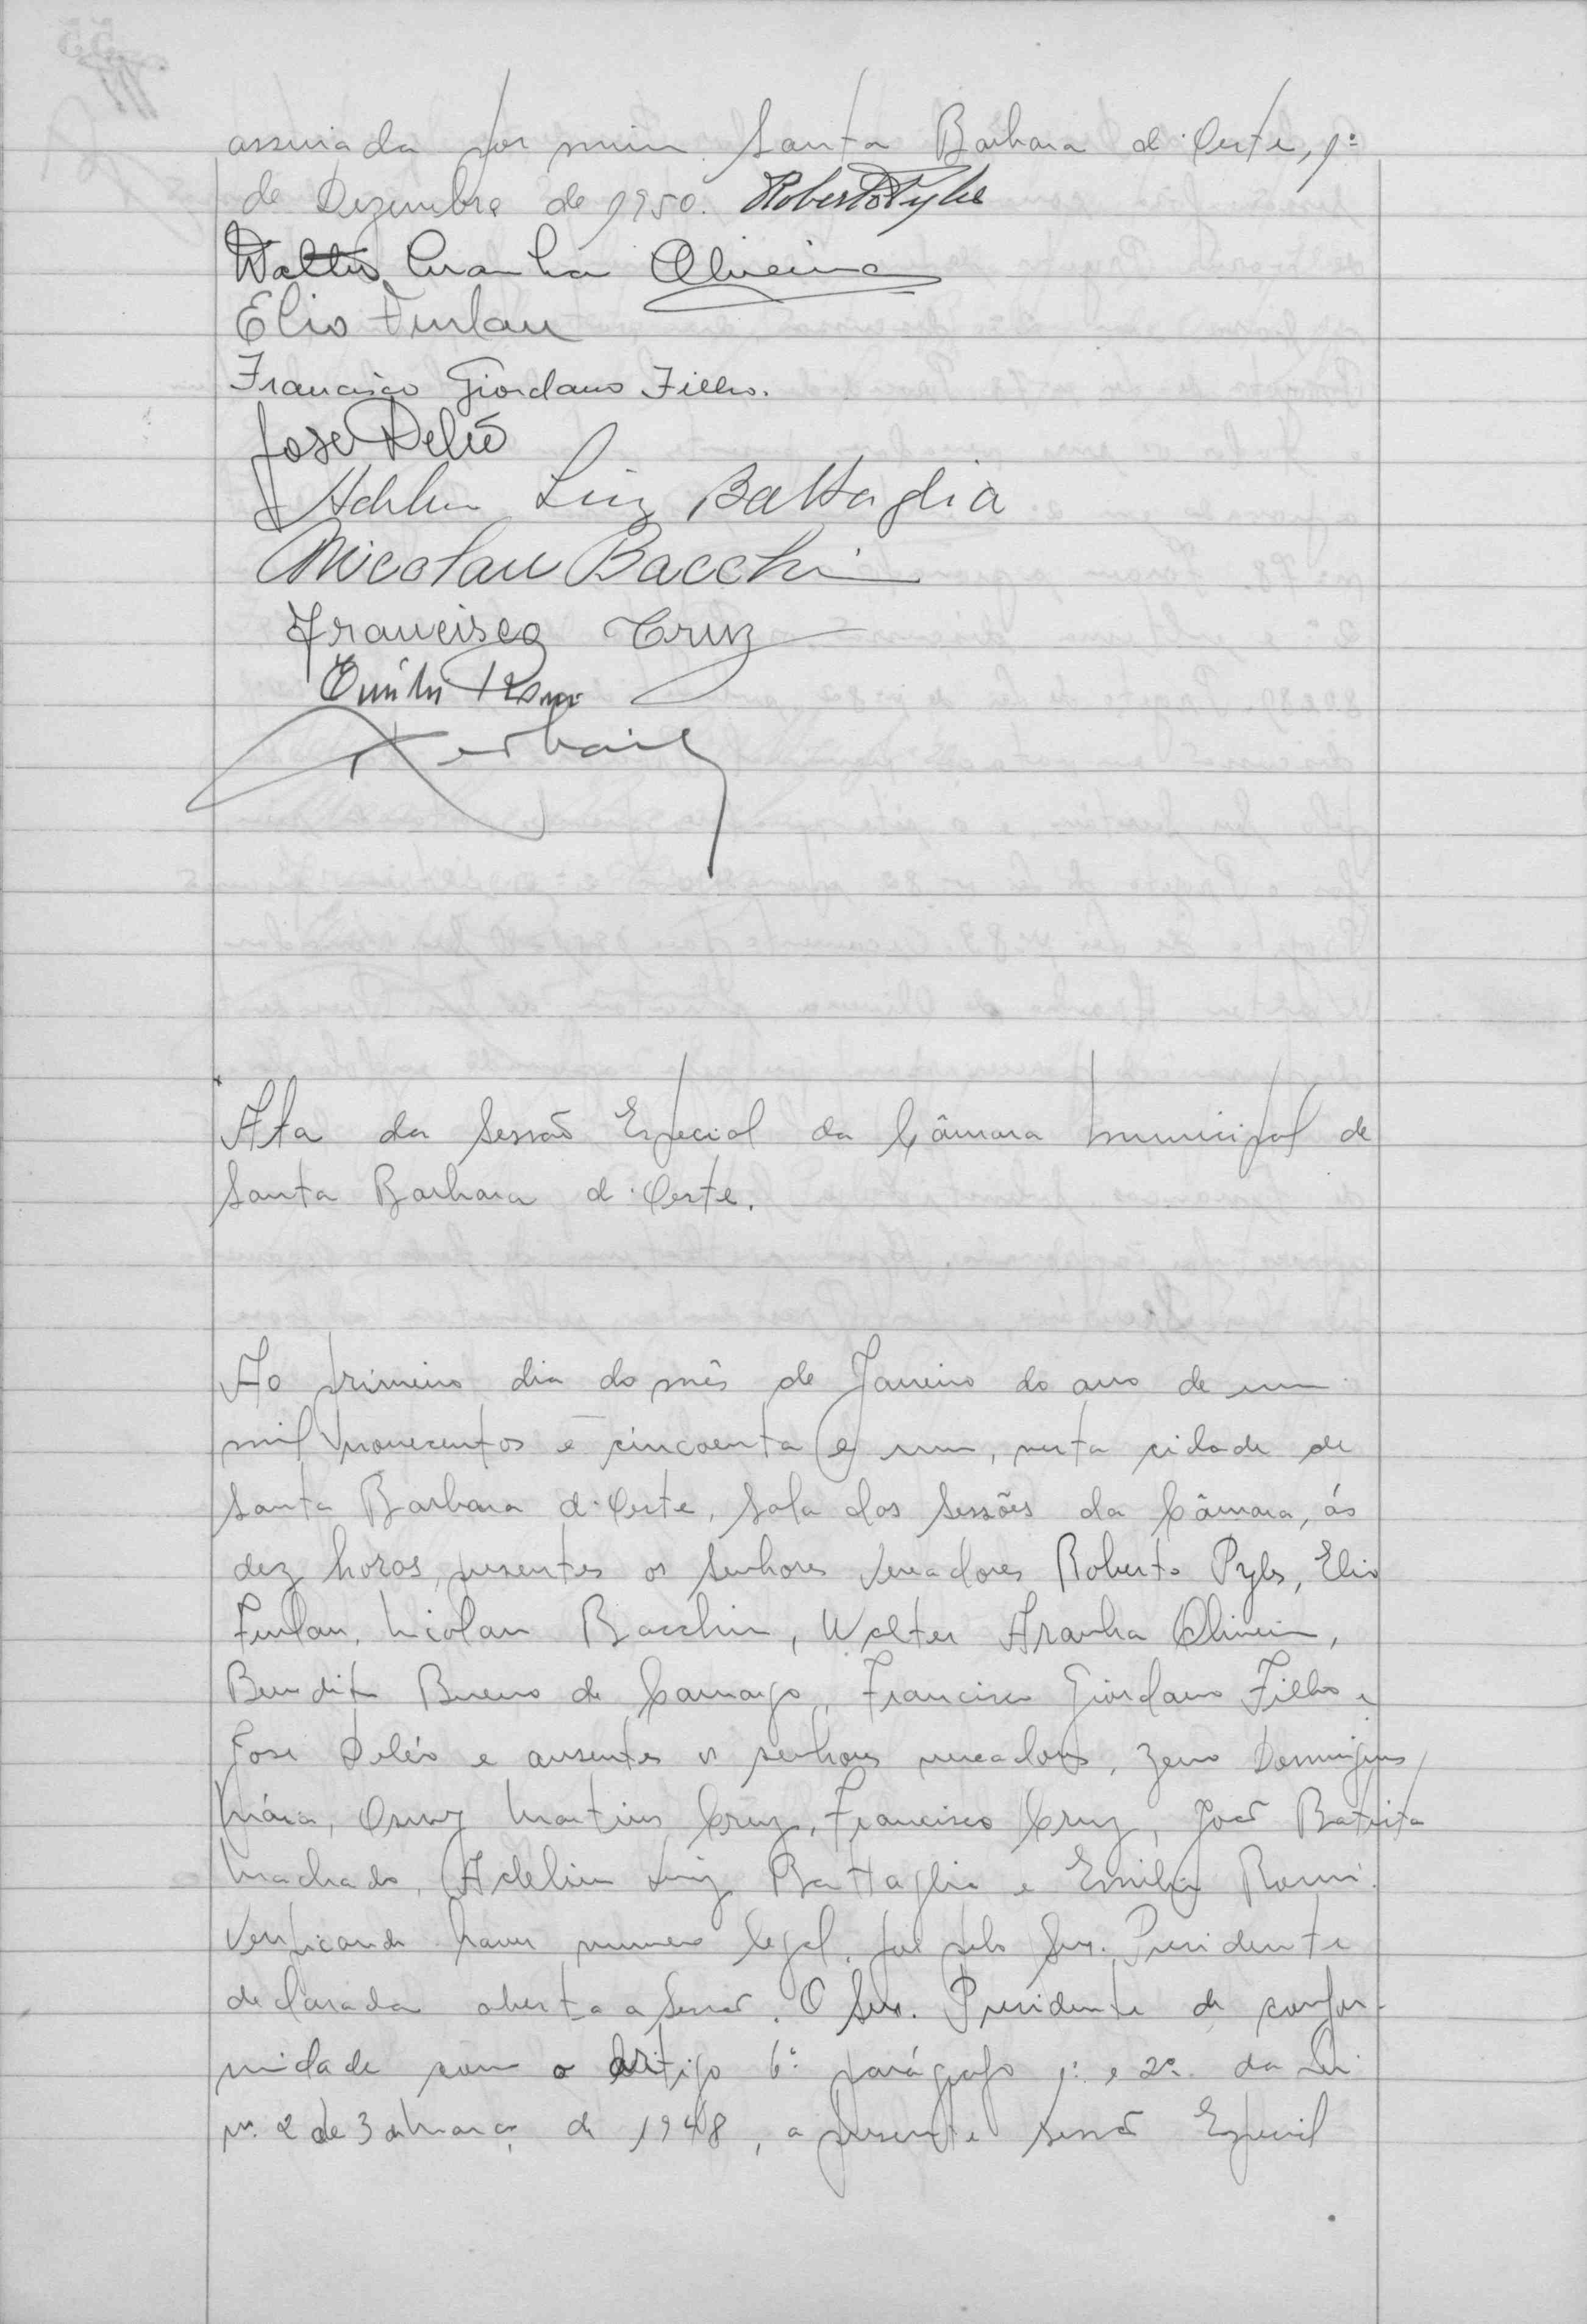 assinada por mim. Santa Barbara d'Oeste, 1º
de Dezembro de 1950. Roberto Pyles
Walter Aranha Oliveira
Elio Furlan
Francisco Giordano Filho.
Jose Deleo
Luiz Battaglia
Nicolau Bacchin
Francisco Cruz
Emilio Romi
Ata da Sessão Especial da Câmara Municipal de
Santa Barbara d'Oeste.
Ao primeiro dia do mês de Janeiro do ano de um
mil novecentos e cincoenta e um, nesta cidade de
Santa Barbara d'Oeste, sala das sessões da Câmara, ás
dez horas, presentes os senhores vereadores Roberto Pyles, Elio
Furlan, Nicolau Bacchin, Walter Aranha Oliveira,
Benedito Bueno de Camargo, Francisco Giordano Filho e
Jose Deléo e ausentes os senhores vereadores, Zeno Domingues
Máia, Osmar Martins Cruz, Francisco Cruz, João Batista
Machado, Adelino Luiz Battaglia e Emilio Romi.
Verificando haver numero legal, foi pelo Snr. Presidente
declarada aberta a sessão. O Snr. Presidente de confor-
midade com o artigo 6º parágrafo 1º e 2º da Lei
nº 2 de 3 de Março de 1948, a presente sessão Especial